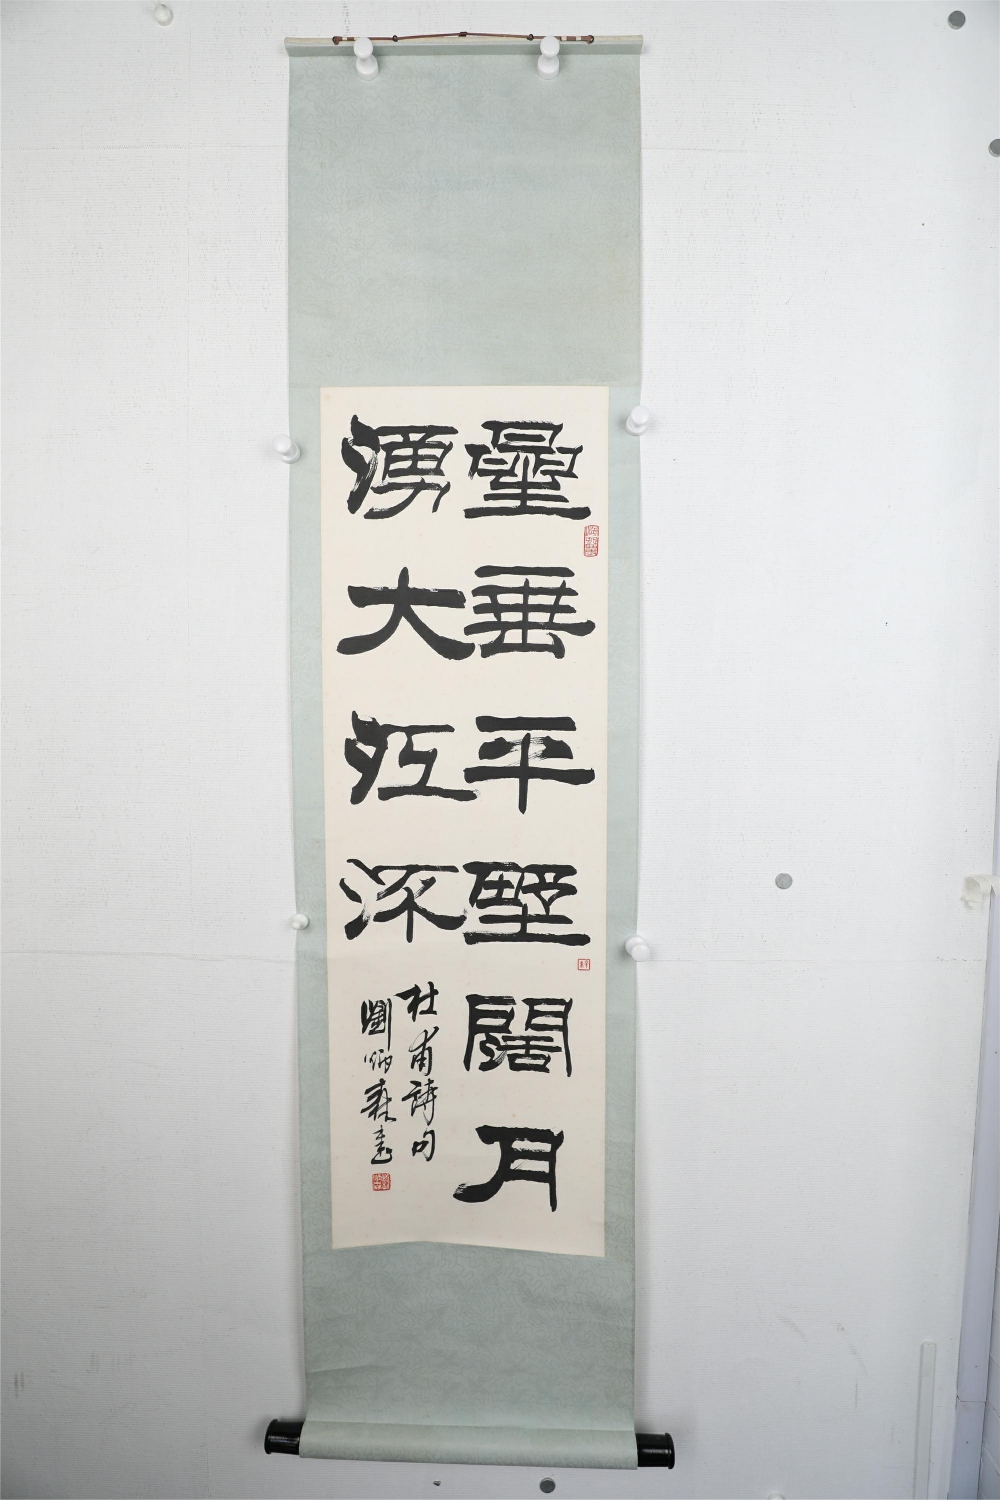 星垂平野闊月
湧大江流
杜甫詩句
劉炳森書